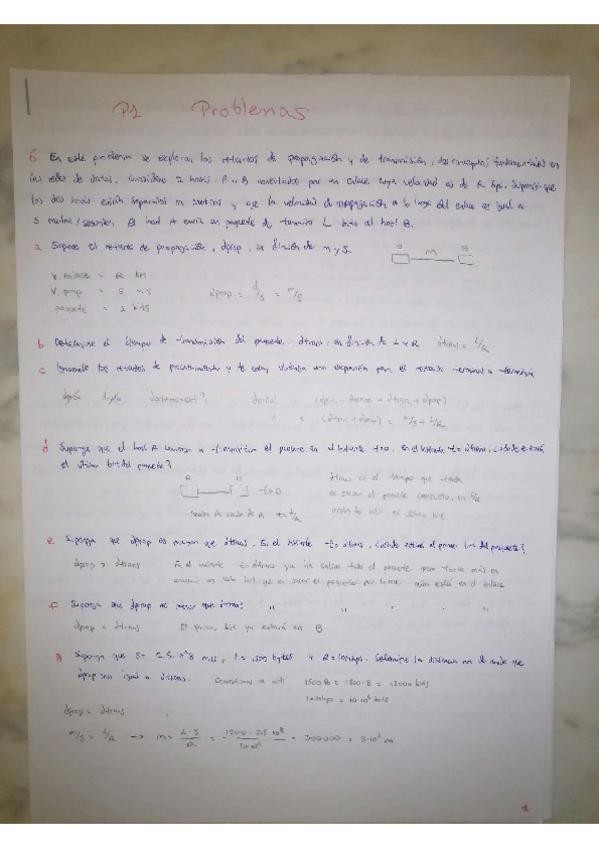 P1 Problemas
6. En este problema se exploran los retardos de propagación y de transmisión, dos conceptos fundamentales en
las redes de datos. Considere 2 hosts A y B conectados por un enlace cuya velocidad es de R bps. Suponga que
los dos hosts están separados m metros y que la velocidad de propagación a lo largo del enlace es igual a
s metros/segundo. El host A envía un paquete de tamaño L bits al host B.
a Exprese el retardo de propagación, dprop, en función de m y s.
A m B
V. enlace = R
V. prop = s m/s
paquete = L bits
dprop = d/s = m/s
b Determine el tiempo de transmisión del paquete dtrans, en función de L y R dtrans = L/R
c Ignorando los retardos de procesamiento y de cola, obtenga una expresión para el retardo terminal a terminal
= m/s + L/R
d Suponga que el host A comienza a transmitir el paquete en el instante t=0. En el instante t = dtrans, ¿dónde estará
el último bit del paquete?
A B
t=0
t = L/R
dtrans es el tiempo que tarda
e Suponga que dprop es mayor que dtrans. En el instante t = dtrans, ¿dónde estará el primer bit del paquete?
dprop > dtrans En el instante t = dtrans ya ha salido todo el paquete pero tarda más en
aún está en el enlace
f Suponga que dprop es menor que dtrans " " " "
dprop < dtrans El primer bit ya estará en B
Suponga que s = 2.5·10^8 m/s, L = 1500 bytes y R = 10Mbps. Determine la distancia m de modo que
dprop sea igual a dtrans. 1500 B = 1500·8 = 12000 bits
10Mbps = 10·10⁶ bits
dprop = dtrans
m/s = L/R → m = L·S/R = 12000·2.5·10⁸/10·10⁶ = 300000 = 3·10⁵ m
1